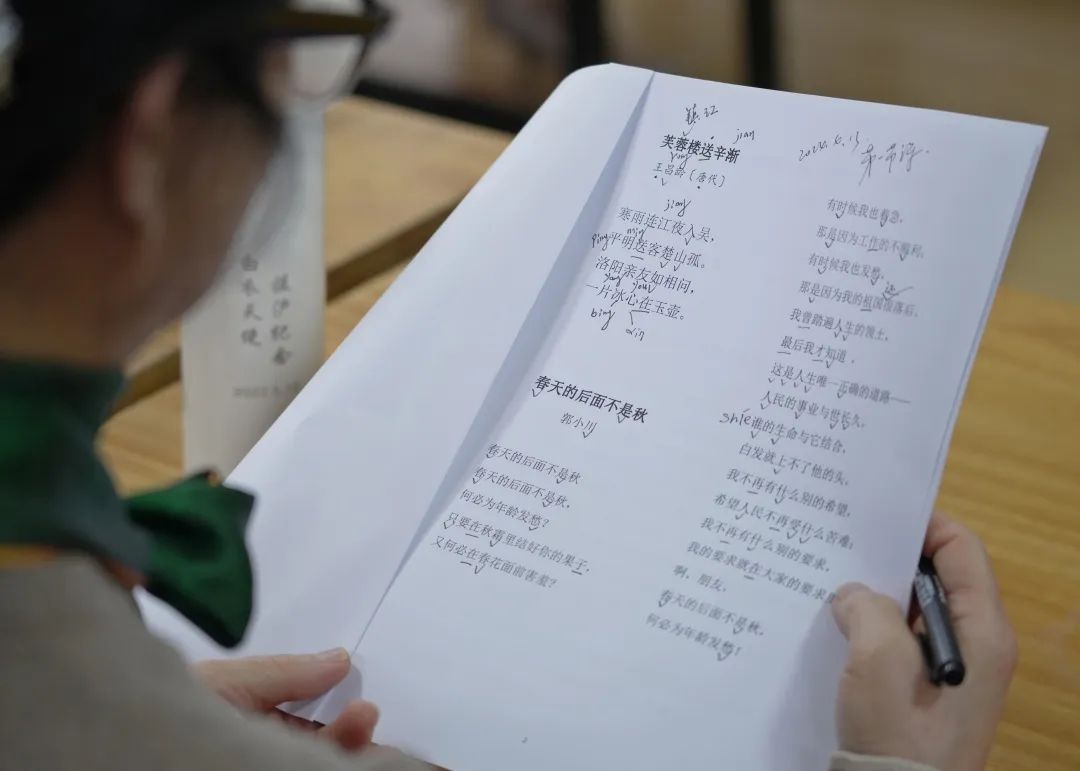 jian
芙蓉楼送辛渐
ying
王昌龄（唐代）
jiang
寒雨连江夜入吴，
ming
ping 平明送客楚山孤。
洛阳亲友如相问，
一片冰心在玉壶。
bing
xin
春天的后面不是秋
郭小川
春天的后面不是秋
春天的后面不是秋，
何必为年龄发愁？
只要在秋霜里结好你的果子，
又何必在春花面前害羞？
有时候我也着急，
那是因为工作的不顺利，
有时候我也发愁，
那是因为我的祖国很落后，
我曾踏遍人生的领土，
最后我才知道，
这是人生唯一正确的道路——
人民的事业与世长久，
shíe 谁的生命与它结合，
白发就上不了他的头，
我不再有什么别的希望，
希望人民不再受什么苦难；
我不再有什么别的要求，
我的要求就在大家的要求
啊，朋友，
春天的后面不是秋，
何必为年龄发愁！
2
白衣天使
援沪纪念